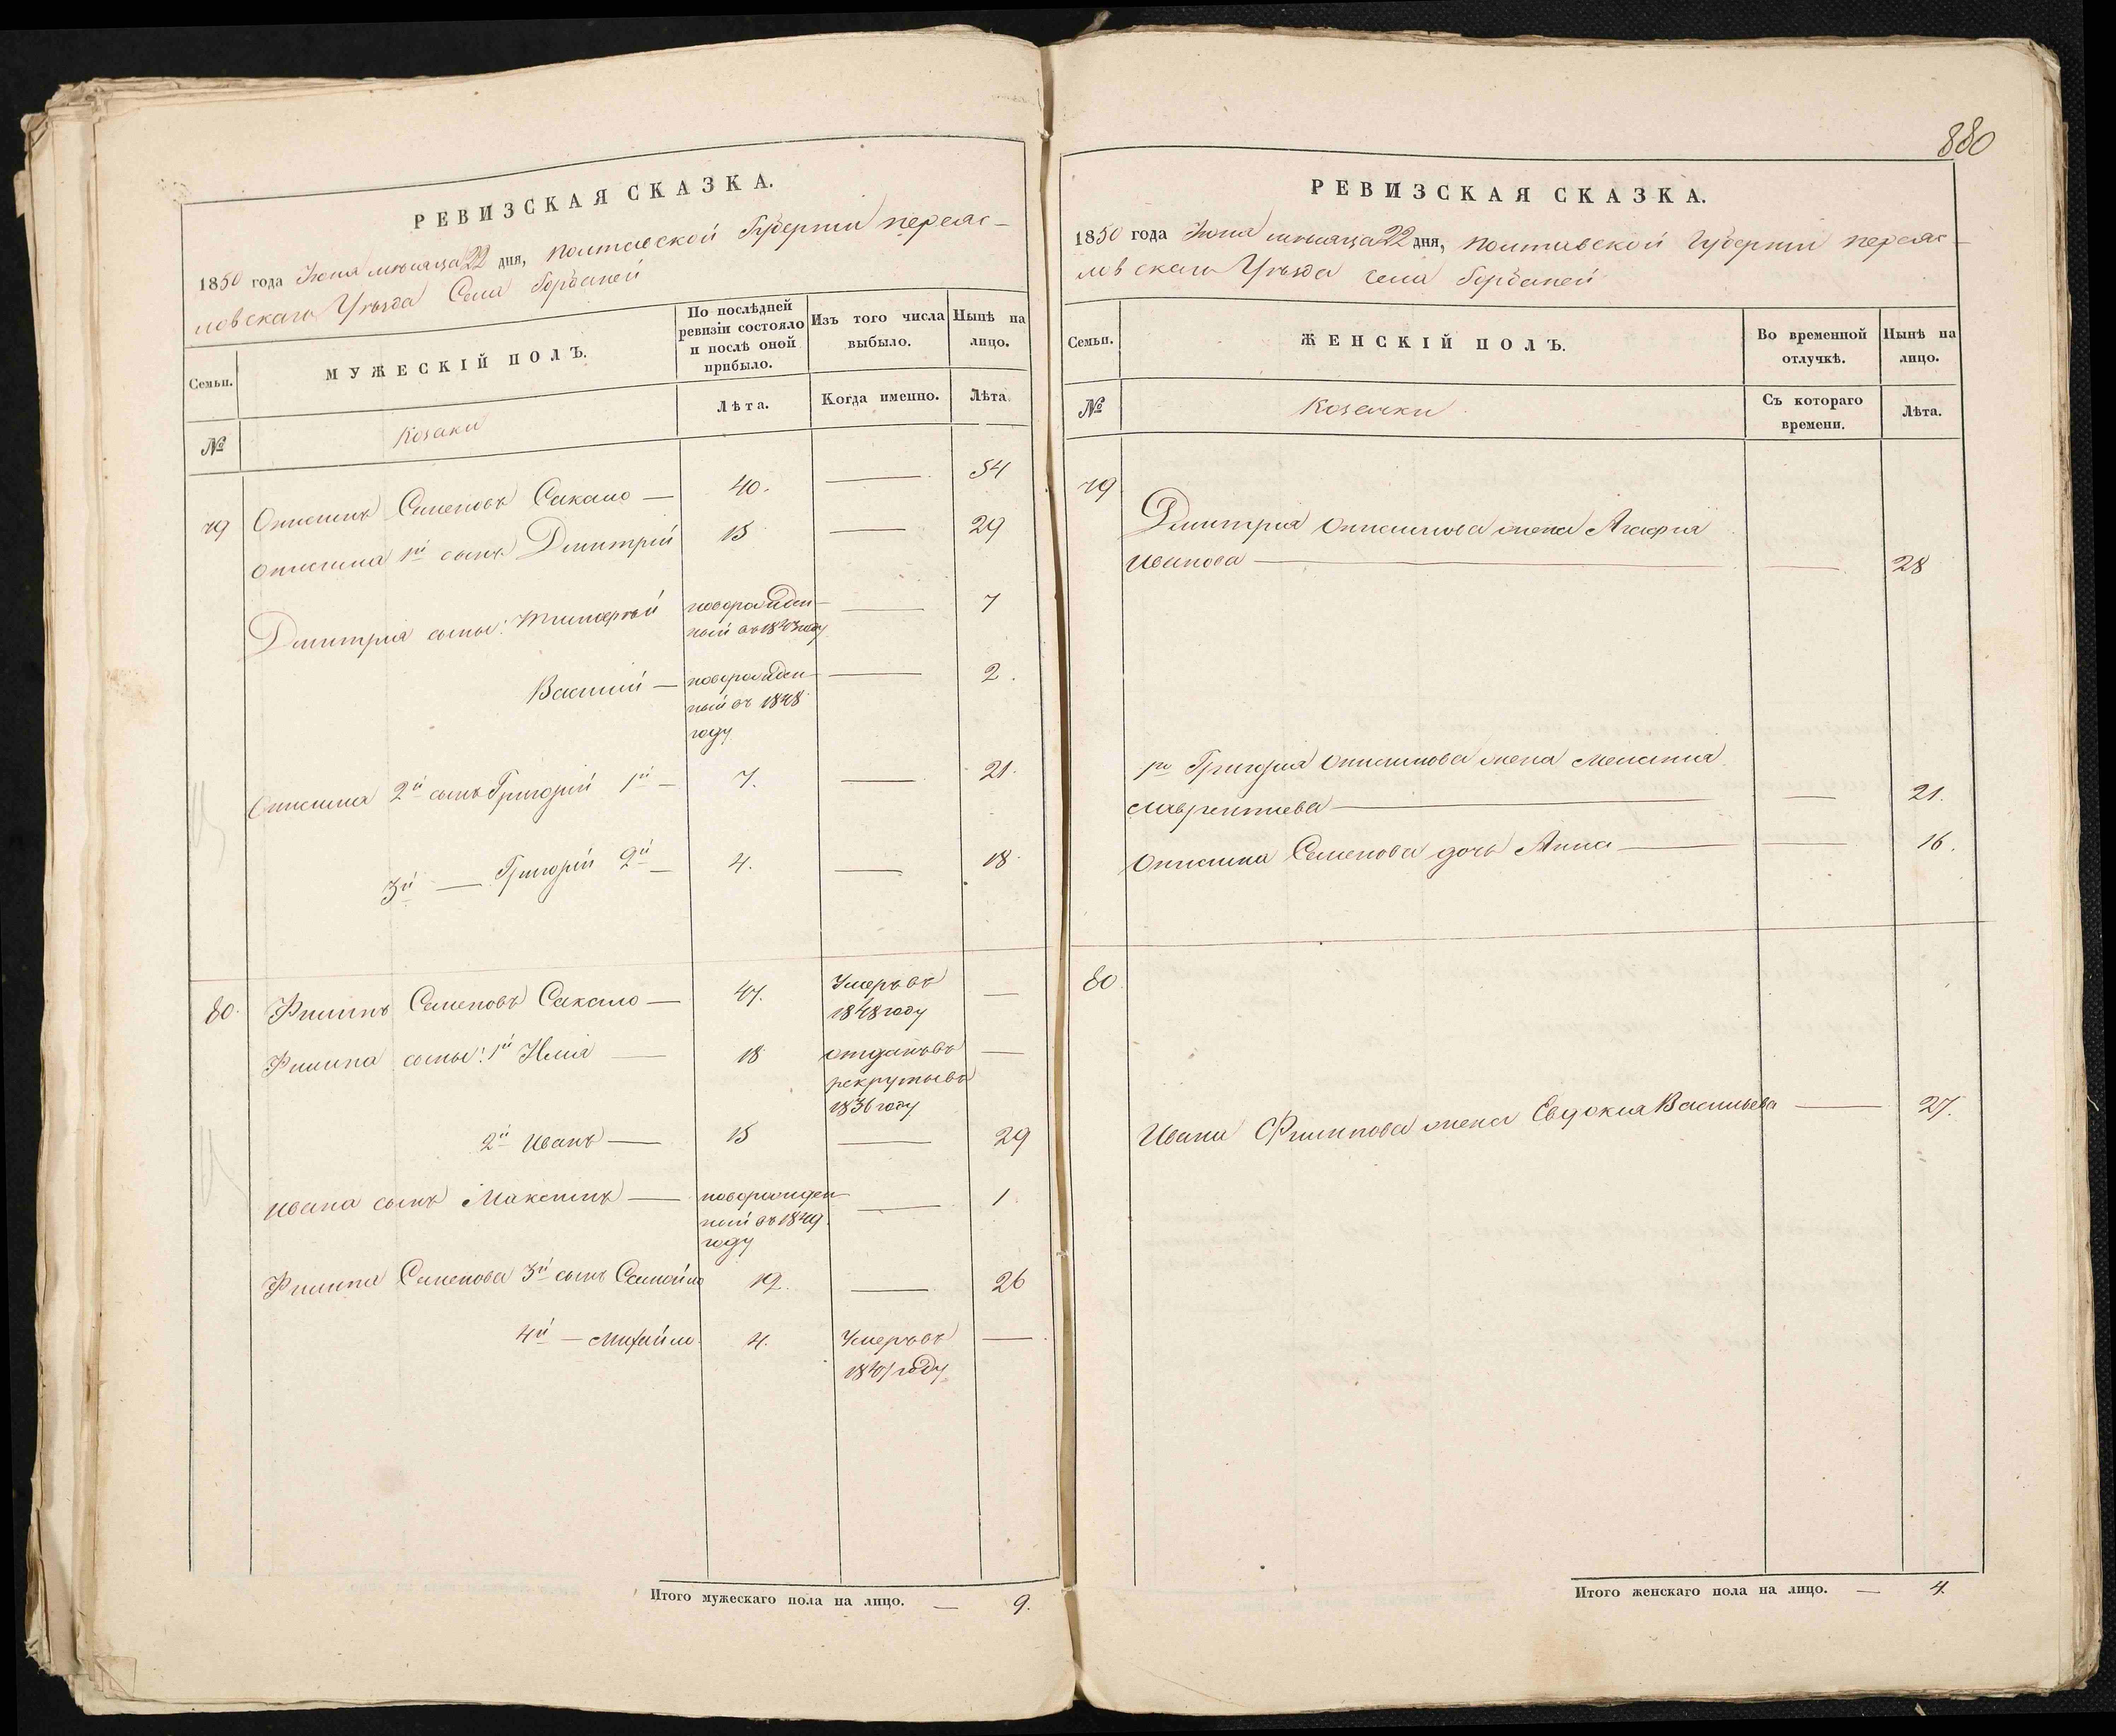 РЕВИЗСКАЯ СКАЗКА.
1850 года Іюня мѣсяца 22 дня, Полтавской Губерніи Переяс-
ловскаго Уѣзда Села Горбаней
Семьи.
МУЖЕСКІЙ ПОЛЪ.
По послѣдней
ревизіи состояло
и послѣ оной
прибыло.
Изъ того числа
выбыло.
Нынѣ на
лицо.
№
Козаки
Лѣта.
Когда именно.
Лѣта.
79 Онисимъ Семеновъ Сакало — 40. — 54
Онисима 1й сынъ Дмитрій 15 — 29
Дмитрія сыны: Тимофѣй новорожден-
ный въ 1843 году — 7
Василій — новорожден-
ный въ 1848
году — 2.
Онисима 2й сынъ Григорій 1й — 7. — 21.
3й — Григорій 2й — 4. — 18.
80. Филипъ Семеновъ Сакало — 47. Умеръ въ
1848 году —
Филипа сыны: 1й Илія — 18 отданъ въ
рекруты въ
1836 году —
2й Иванъ — 15 — 29
Ивана сынъ Максимъ — новорожден-
ный въ 1849
году — 1
Филипа Семенова 3й сынъ Самойло 12. — 26
4й — Михайло 4. Умеръ въ
1841 году —
Итого мужескаго пола на лицо. — 9.
880
РЕВИЗСКАЯ СКАЗКА.
1850 года Іюня мѣсяца 22 дня, Полтавской Губерніи Переяс-
ловскаго Уѣзда села Горбаней
Семьи.
ЖЕНСКІЙ ПОЛЪ.
Во временной
отлучкѣ.
Нынѣ на
лицо.
№
Козачки
Съ котораго
времени.
Лѣта.
79
Дмитрія Онисимова жена Агафія
Иванова — — 28
1го Григорія Онисимова жена Меланія
Лаврентіева — — 21.
Онисима Семенова дочь Анна — — 16.
80.
Ивана Филипова жена Евдокія Васильева — 27.
Итого женскаго пола на лицо. — 4.